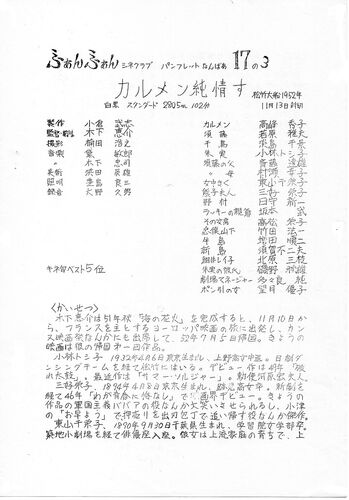 ふぁんふぁん シネクラブ パンフレットなんばあ 17の3
カルメン純情す
松竹大船1952年
白黒 スタンダード 2805m 102分
11月13日封切
製作 小倉 武志
監督・脚本 木下 恵介
撮影 楠田 浩之
音楽 黛 敏郎
〃 木下 忠司
美術 浜田 辰雄
照明 豊島 良三
録音 大野 久男
キネ旬ベスト5位
カルメン 高峰 秀子
須藤 若原 雅夫
千鳥 淡島 千景
朱実 小林トシ子
須藤の父 斎藤 達雄
〃 母 村瀬 幸子
女中きく 東山千栄子
熊子夫人 三好 栄子
野村 日守 新一
ラッキーの親爺 坂本 武
その女房
竹田 法一
牛島 増田 順二
新島 須賀不二夫
細井レイ子 北原 三枝
朱実の彼氏 磯野 秋雄
劇場マネージャー 多々良 純
ポン引の女 望月 優子
〈かいせつ〉
木下恵介は51年秋「海の花火」を完成すると、11月10日か
ら、フランスを主とするヨーロッパ映画の旅に出発し、カン
ヌ映画祭なんかにも出席して、52年7月5日帰国。きょうの
映画は彼の帰国第一回作品。
小林トシ子 1932年4月6日東京生まれ、上野高女中退。日劇ダン
シングチームを経て松竹にはいる。デビュー作は49年「破
れ太鼓」。最近作は「サマー・ソルジャー」。勅使河原宏夫人。
三好栄子。1894年4月8日東京生まれ、跡見高女卒。新劇を
経て46年「わが青春に悔なし」で、映画界デビュー。きょうの
作品の軍国主義ババアの役なんか大笑いさせられるし、小津
の「お早よう」で押売りを出刃包丁で追い帰す役なんか傑作。
東山千栄子。1890年9月30日千葉県生まれ、学習院女学部卒。
築地小劇場を経て俳優座入座。彼女は上流家庭の育ちで、上